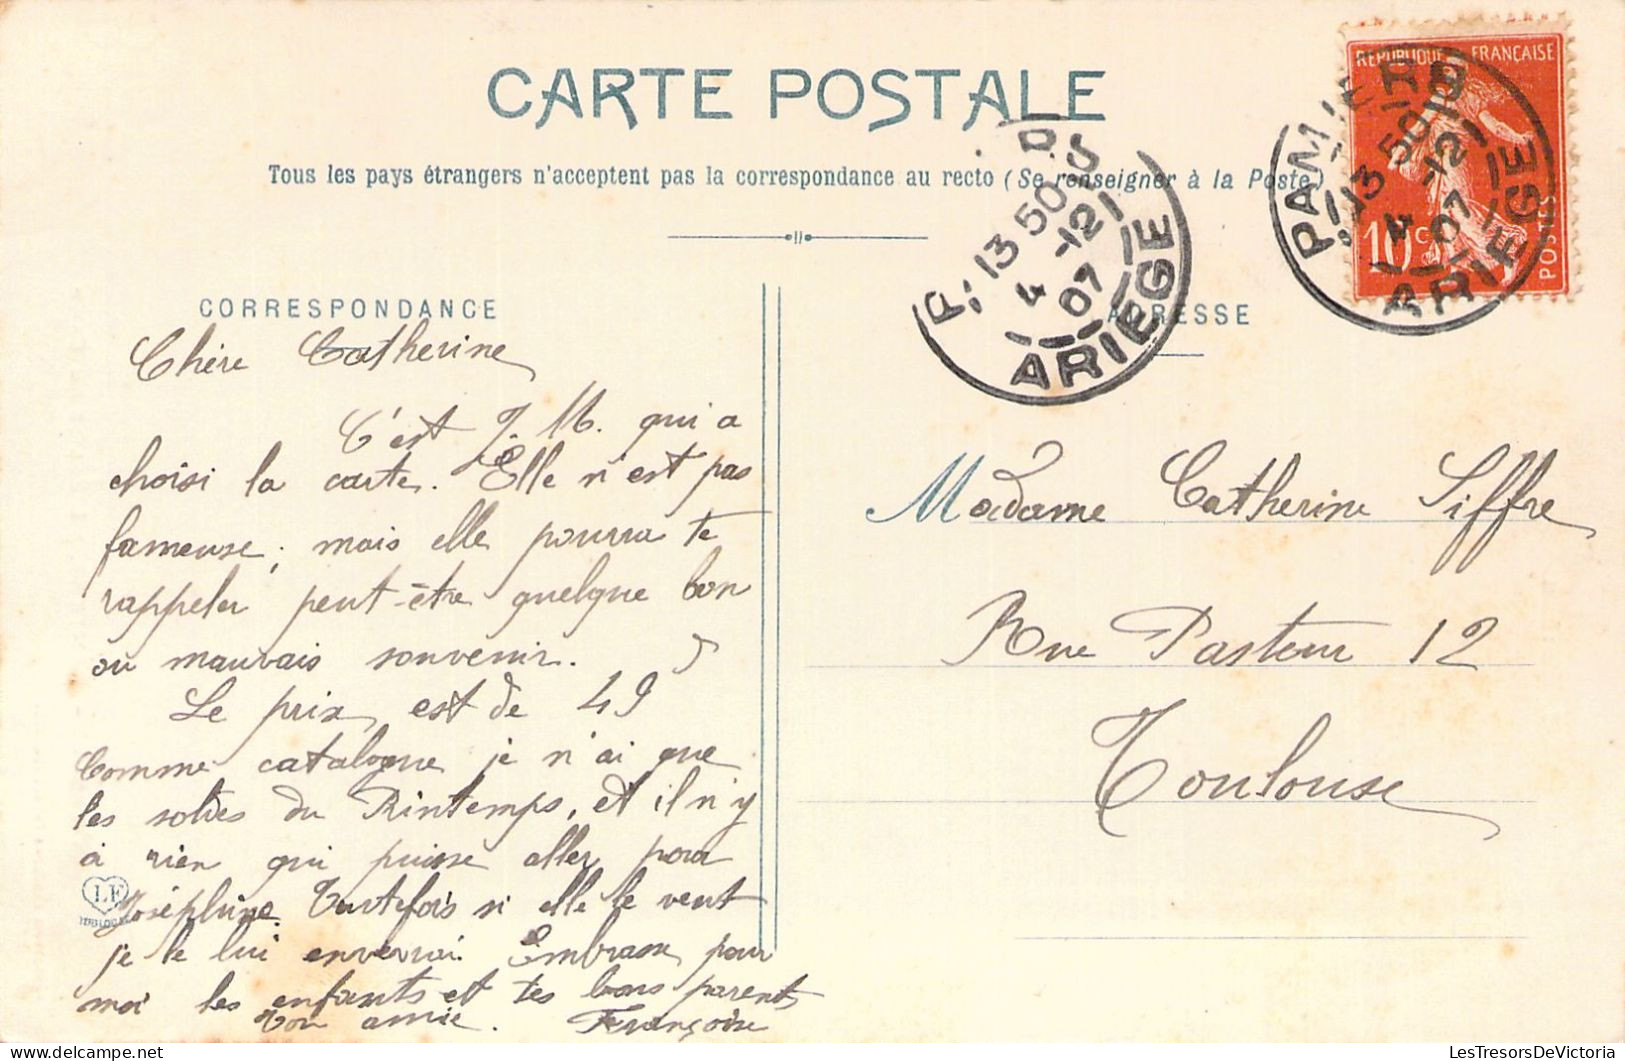 CARTE POSTALE
Tous les pays étrangers n'acceptent pas la correspondance au recto (Se renseigner à la Poste)
REPUBLIQUE FRANÇAISE
10c
POSTES
PAMIERS
13 50
4 -12
07
ARIEGE
13 50
4 -12
07
ARIEGE
CORRESPONDANCE
Chère Catherine
C'est J. M. qui a
choisi la carte. Elle n'est pas
fameuse, mais elle pourra te
rappeler peut-être quelque bon
ou mauvais souvenir.
Le prix est de 49
Comme catalogue je n'ai que
les soldes du Printemps, et il n'y
a rien qui puisse aller pour
Joséphine. Toutefois si elle le veut
je le lui enverrai. Embrasse pour
moi les enfants et tes bons parents
Ton amie. Françoise
LF
TOULOUSE
ADRESSE
Madame Catherine Siffre
Rue Pasteur 12
Toulouse
LesTresorsDeVictoria